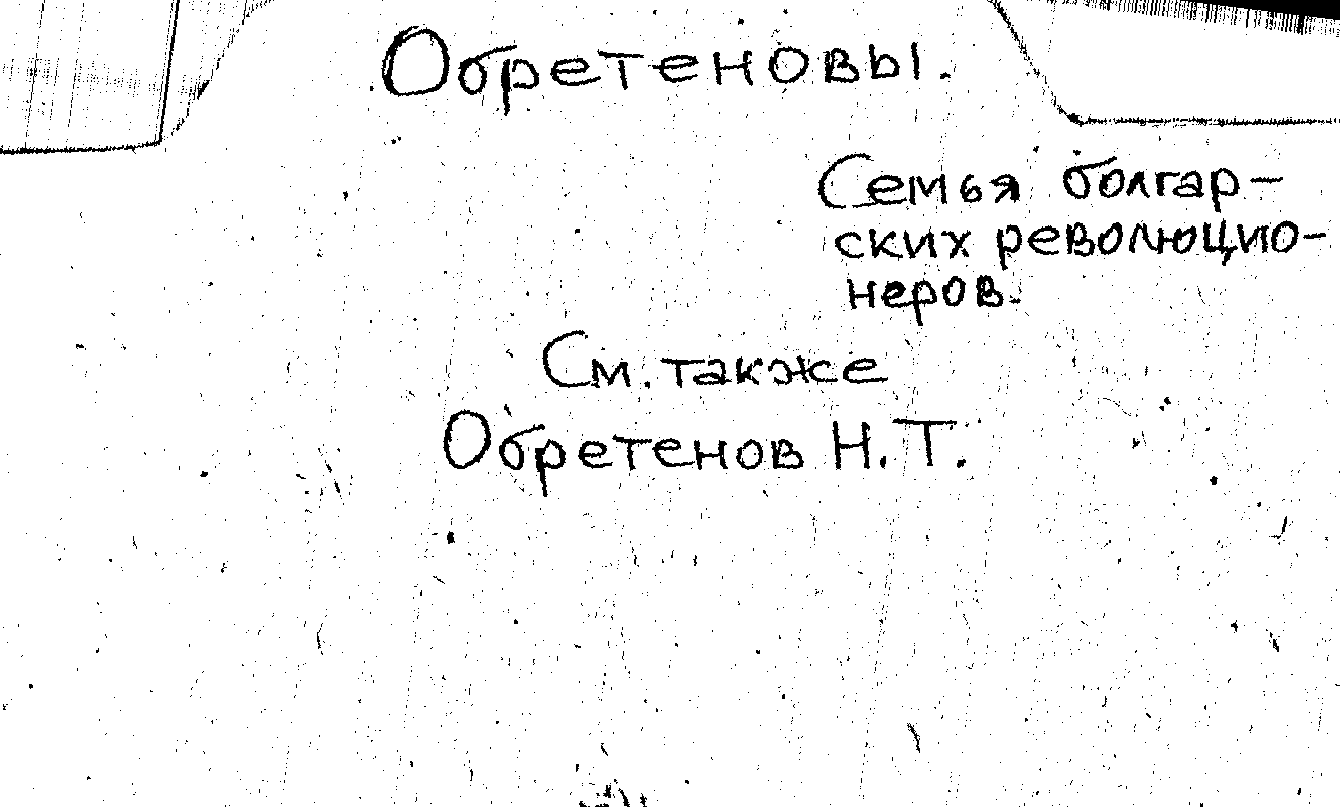 Обретеновы.
Семья болгар-
ских революцио-
неров.
См. также
Обретенов Н. Т.